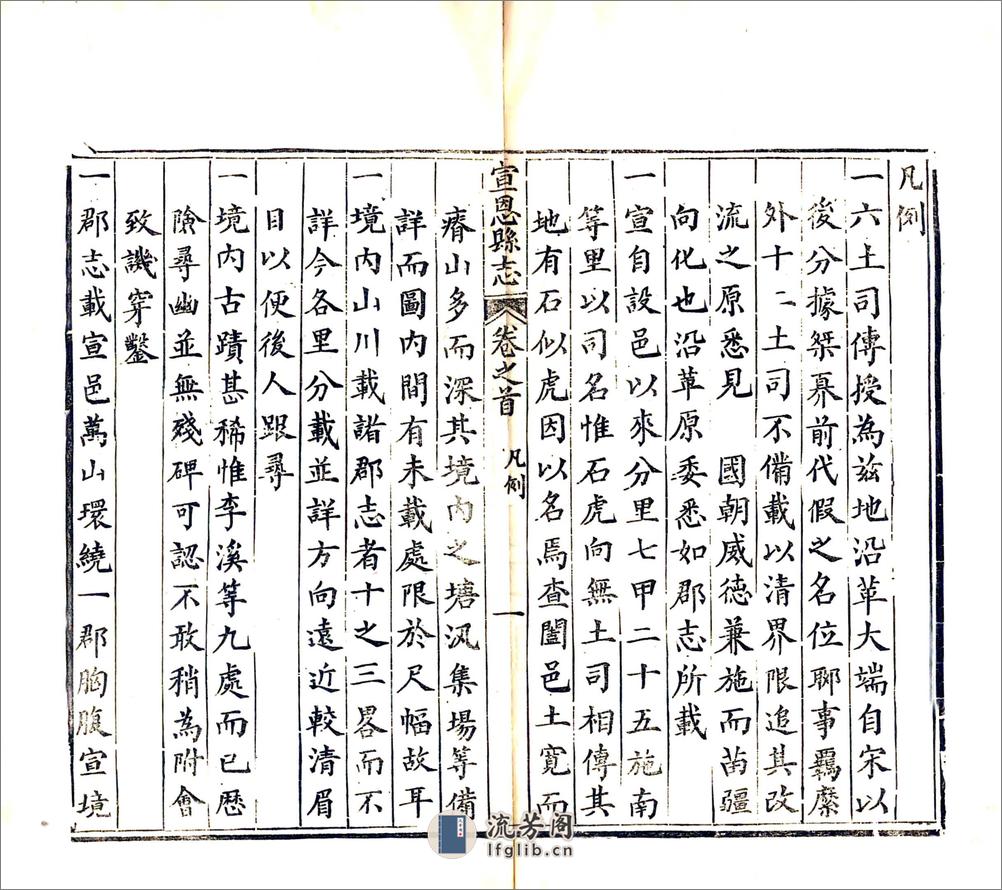 凡例
一六土司傳授為茲地沿革大端自宋以
後分據桀奡前代假之名位聊事羈縻
外十二土司不備載以清界限追其改
流之原悉見　國朝威德兼施而苗疆
向化也沿革原委悉如郡志所載
一宣自設邑以來分里七甲二十五施南
等里以司名惟石虎向無土司相傳其
地有石似虎因以名焉查闔邑土寬而
宣恩縣志　卷之首　凡例　一
瘠山多而深其境內之塘汛集場等備
詳而圖內間有未載處限於尺幅故耳
一境內山川載諸郡志者十之三畧而不
詳今各里分載並詳方向遠近較清眉
目以便後人跟尋
一境內古蹟甚稀惟李溪等九處而已歷
險尋幽並無殘碑可認不敢稍為附會
致譏穿鑿
一郡志載宣邑萬山環繞一郡胸腹宣境
流芳阁
lfglib.cn